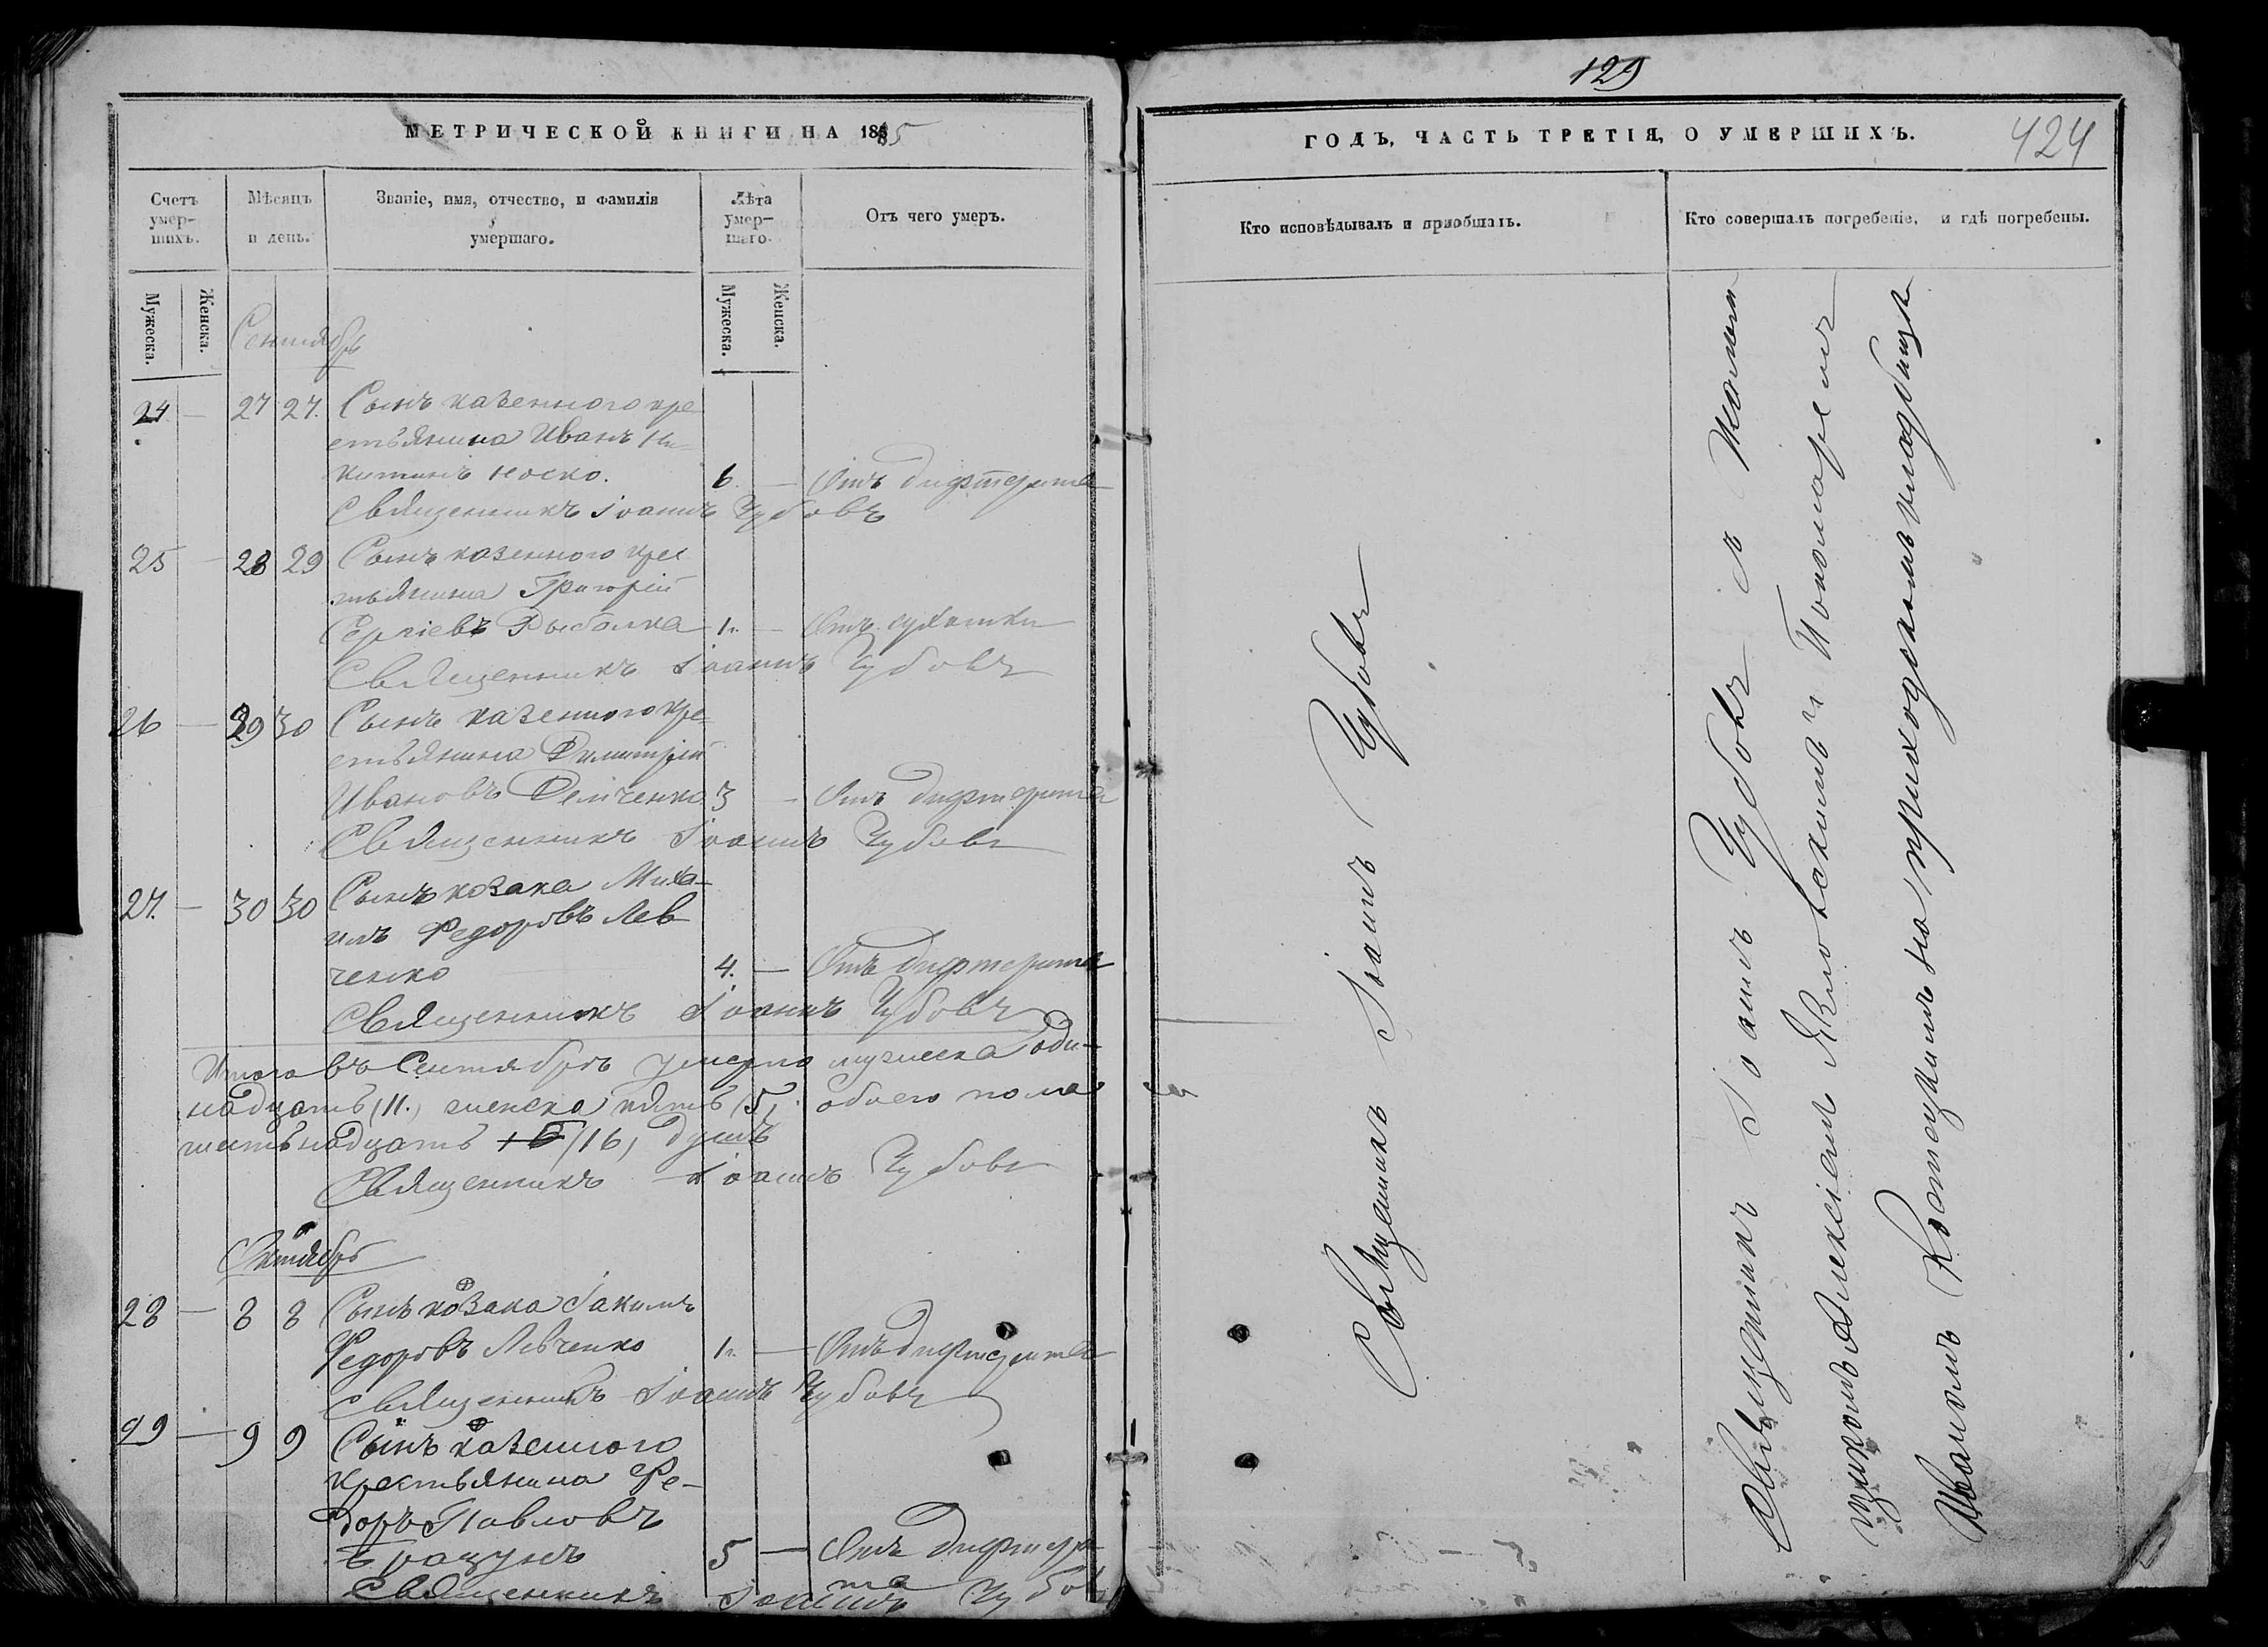 МЕТРИЧЕСКОЙ КНИГИ НА 1885
Счетъ умершихъ.
Мѣсяцъ и день.
Званіе, имя, отчество, и фамилія умершаго.
Лѣта умершаго.
Отъ чего умеръ.
Мужеска.
Женска.
Мужеска.
Женска.
Сентябрь
24 — 27 27. Сынъ казенного кре
стьянина Иванъ Ни=
китинъ Носко. 6. — Отъ дифтерита
Священникъ Іоаннъ Чубовъ
25 — 28 29 Сынъ казенного крес
тьянина Григорій
Сергіевъ Рыбалка 1 — Отъ сухотки
Священникъ Іоаннъ Чубовъ
26 — 29 30 Сынъ казенного кре-
стьянина Димитрій
Ивановъ Демченко 3 — Отъ дифтерита
Священникъ Іоаннъ Чубовъ
27. — 30 30 Сынъ козака Миха-
илъ Федоровъ Лев
ченко 4. — Отъ дифтерита
Священникъ Іоаннъ Чубовъ
Итого въ Сентябрѣ умерло мужеска оди-
надцать (11.) женска пять (5), обоего пола
шестьнадцать (16) душъ
Священникъ Іоаннъ Чубовъ
Октябрь
28 — 8 8 Сынъ козака Іакимъ
Федоровъ Левченко 1 — Отъ дифтерита
Священникъ Іоаннъ Чубовъ
29 — 9 9 Сынъ казенного
крестьянина Фе-
доръ Павловъ
5 — Отъ дифтери
та
Священникъ Іоаннъ Чубовъ
129
ГОДЪ, ЧАСТЬ ТРЕТІЯ, О УМЕРШИХЪ.
424
Кто исповѣдывалъ и пріобщалъ.
Кто совершалъ погребеніе, и гдѣ погребены.
Священникъ Іоаннъ Чубовъ
Священникъ Іоаннъ Чубовъ
Алексіем и Пономарем
Иваномъ на приходскомъ кладбищѣ